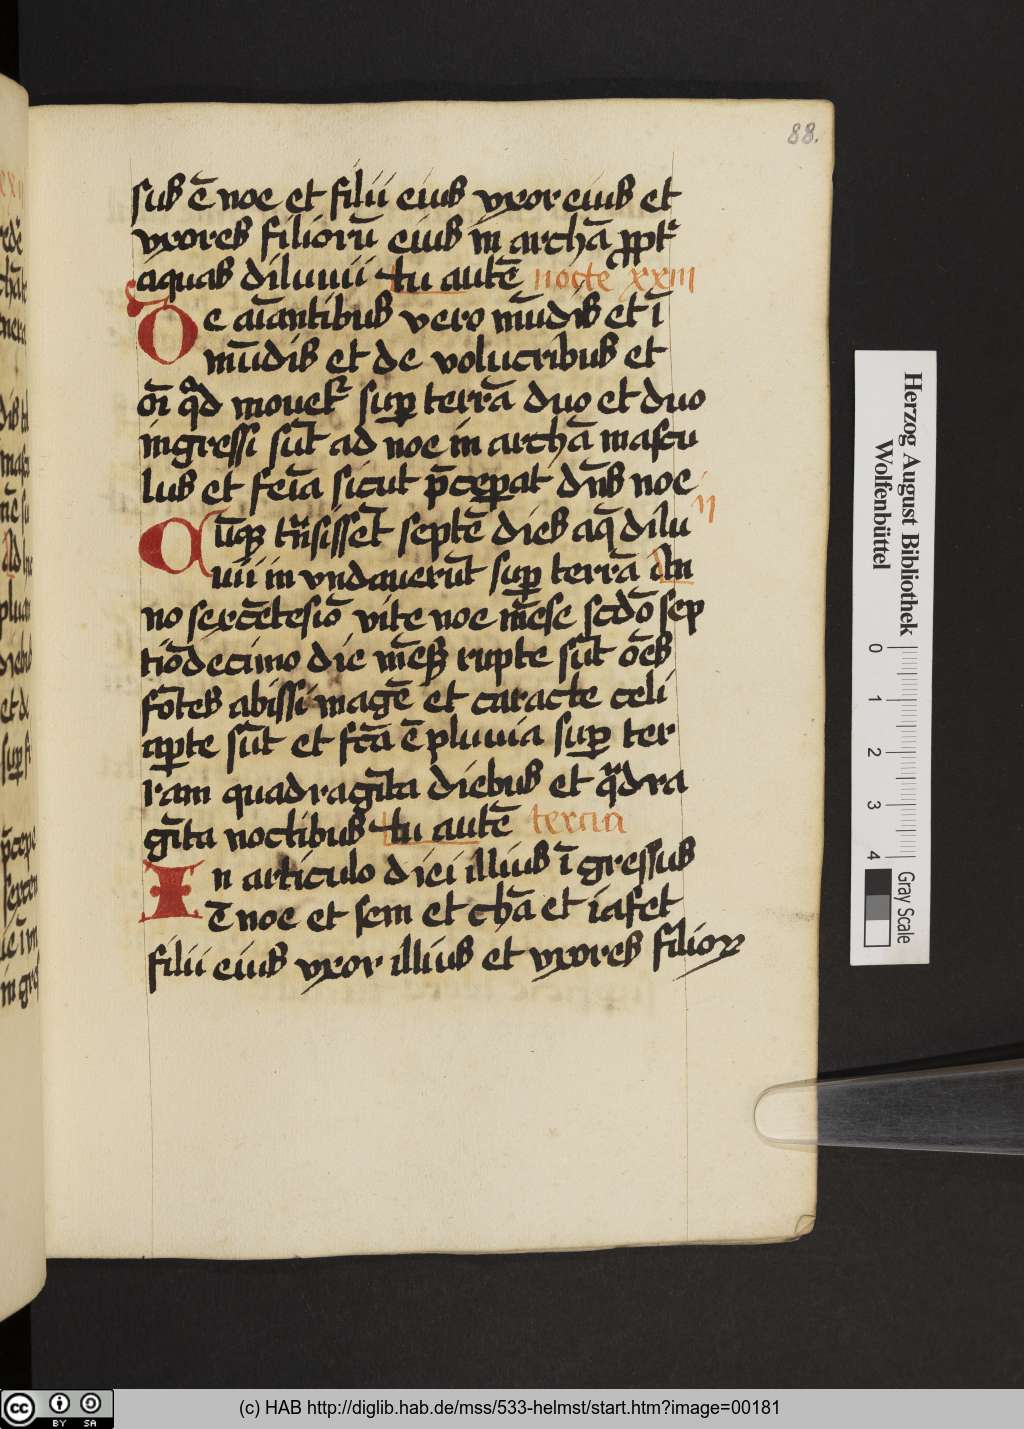 88.
sus ē noe et filii eius vxor eius et
vxores filiorū eius in archā ꝓpt᷒
aquas diluuii tu autē nocte xxiii
De aīantibus vero mūdis et ī
mūdis et de volucribus et
oī qͦd mouet᷒ suꝑ terrā duo et duo
ingressi sūt ad noe in archā mascu
lus et feīa sicut p̄ceꝑat dn̄s noe
Cūqꝫ tn̄sissēt septē dies aq̄ dilu ii
uii in vndauerūt suꝑ terrā An
no sexcētesiō vite noe mēse scdō sep
tiōdecimo die mēsꝭ rupte sūt oēs
fōtes abissi magē et caracte celi
aꝑte sūt et fc̄a ē pluuia suꝑ ter
ram quadragīta diebus et qͣdra
gīta noctibus tu autē tercia
In articulo diei illius ī gressus
ē noe et sem et chā et iafet
filii eius vxor illius et vxores filioꝝ
Herzog August Bibliothek
Wolfenbüttel
0 1 2 3 4
Gray Scale
cc BY SA
(c) HAB http://diglib.hab.de/mss/533-helmst/start.htm?image=00181